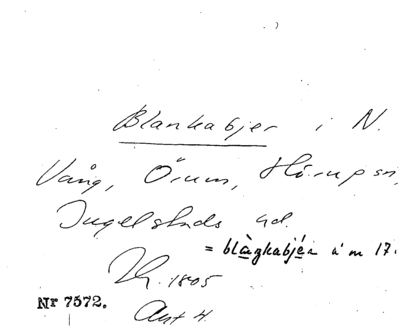 Blankabjer i N.
Vång, Örum, Hörups sn,
Ingelstads hd.
= blàŋkabjér u'm 17.
Lk. 1805
Akt 4.
Nr 7572.